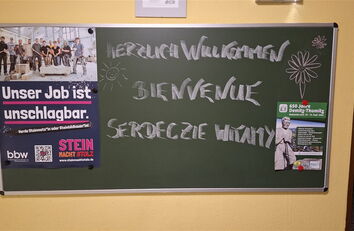 HERZLICH WILLKOMMEN
BIENVENUE
SERDECZIE WITAMY
Unser Job ist
unschlagbar.
Werde Steinmetz*in oder Steinbildhauer*in!
bbw
STEIN
MACHT STOLZ
650 Jahre
Demitz-Thumitz